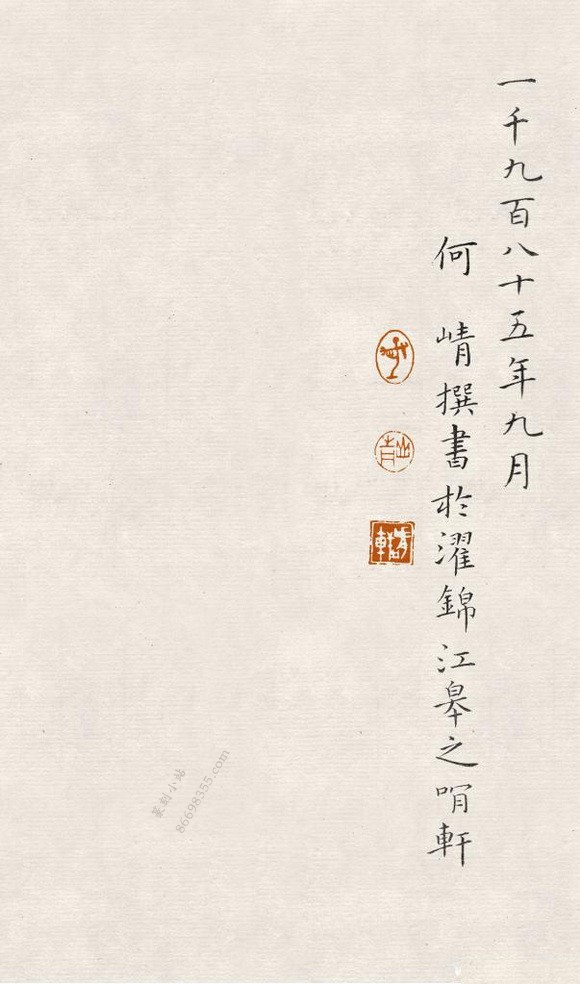 一千九百八十五年九月
何 崝撰書於濯錦江皋之軒
篆刻小站
86698355.com